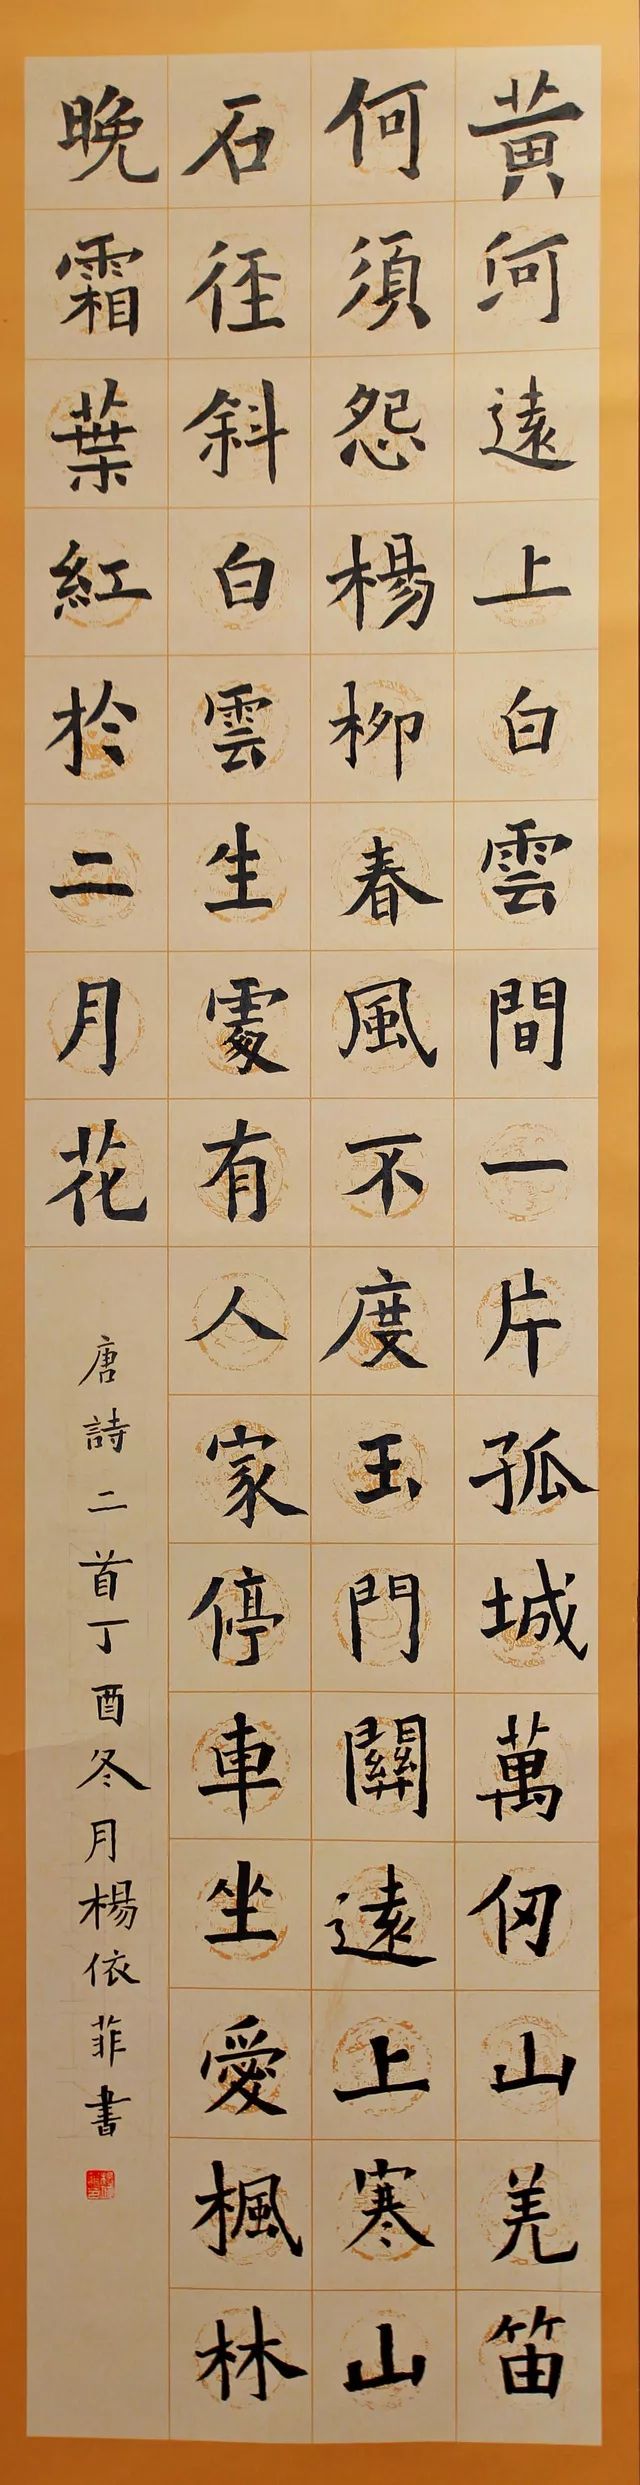 黃河遠上白雲間一片孤城萬仞山羌笛
何須怨楊柳春風不度玉門關遠上寒山
石徑斜白雲生處有人家停車坐愛楓林
晚霜葉紅於二月花
唐詩二首丁酉冬月楊依菲書